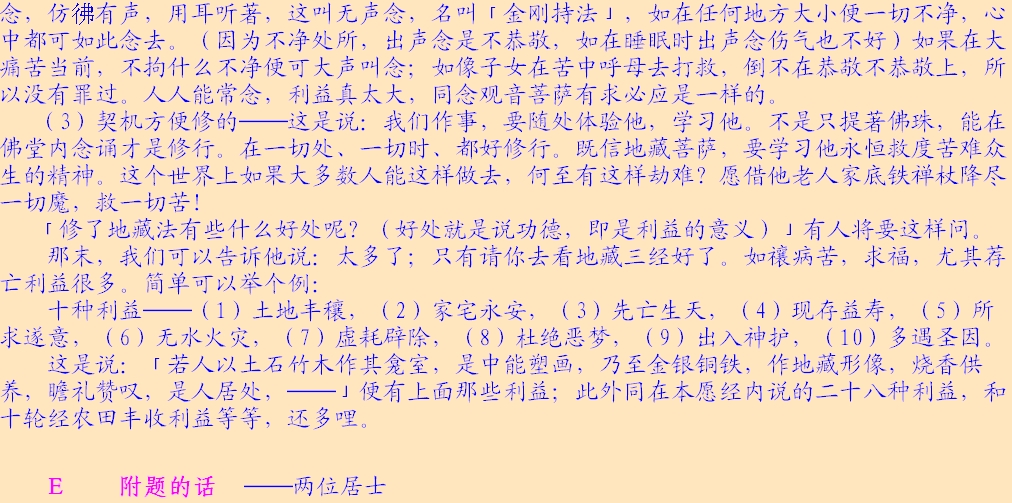 念，仿彿有声，用耳听著，这叫无声念，名叫「金刚持法」，如在任何地方大小便一切不净，心
中都可如此念去。（因为不净处所，出声念是不恭敬，如在睡眠时出声念伤气也不好）如果在大
痛苦当前，不拘什么不净便可大声叫念；如像子女在苦中呼母去打救，倒不在恭敬不恭敬上，所
以没有罪过。人人能常念，利益真太大，同念观音菩萨有求必应是一样的。
（3）契机方便修的——这是说：我们作事，要随处体验他，学习他。不是只提著佛珠，能在
佛堂内念诵才是修行。在一切处、一切时、都好修行。既信地藏菩萨，要学习他永恒救度苦难众
生的精神。这个世界上如果大多数人能这样做去，何至有这样劫难？愿借他老人家底铁禅杖降尽
一切魔，救一切苦！
「修了地藏法有些什么好处呢？（好处就是说功德，即是利益的意义）」有人将要这样问。
那末，我们可以告诉他说：太多了；只有请你去看地藏三经好了。如禳病苦，求福，尤其荐
亡利益很多。简单可以举个例：
十种利益——（1）土地丰穰，（2）家宅永安，（3）先亡生天，（4）现存益寿，（5）所
求遂意，（6）无水火灾，（7）虚耗辟除，（8）杜绝恶梦，（9）出入神护，（10）多遇圣因。
这是说：「若人以土石竹木作其龛室，是中能塑画，乃至金银铜铁，作地藏形像，烧香供
养，瞻礼赞叹，是人居处，——」便有上面那些利益；此外同在本愿经内说的二十八种利益，和
十轮经农田丰收利益等等，还多哩。
E 附题的话 ——两位居士